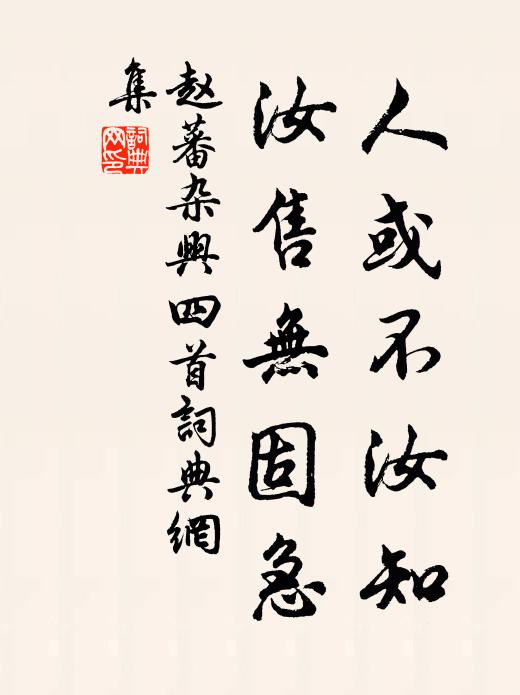 人或不汝知
汝售無固急
赵蕃杂興四首詞典網
集
詞典
网印